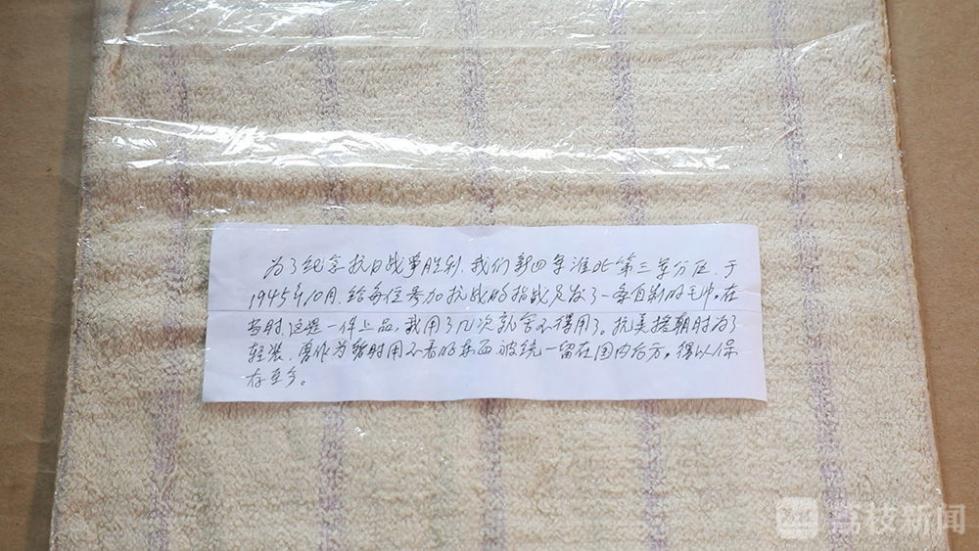 为了纪念抗日战争胜利，我们新四军淮北第三军分区，于
1945年10月，给每位参加抗战的指战员发了一条自制的毛巾。在
当时，这是一件上品，我用了几次就舍不得用了。抗美援朝时为了
轻装，曾作为暂时用不着的东西被统一留在国内后方，得以保
存至今。
荔枝新闻